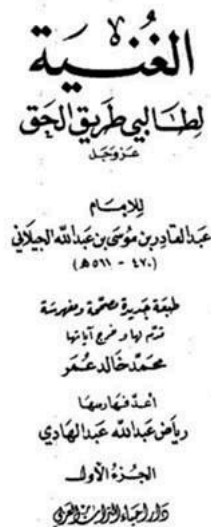 الغنية
لطالبي طريق الحق
عز وجل
للإمام
عبد القادر بن موسى بن عبد الله الجيلاني
(٤٧٠ - ٥٦١ هـ)
طبعة جديرة مصححة ومفهرسة
قدم لها وخرج آياتها
محمد خالد عمر
أعد فهارسها
رياض عبد الله عبد الهادي
الجزء الأول
دار احياء التراث العربي